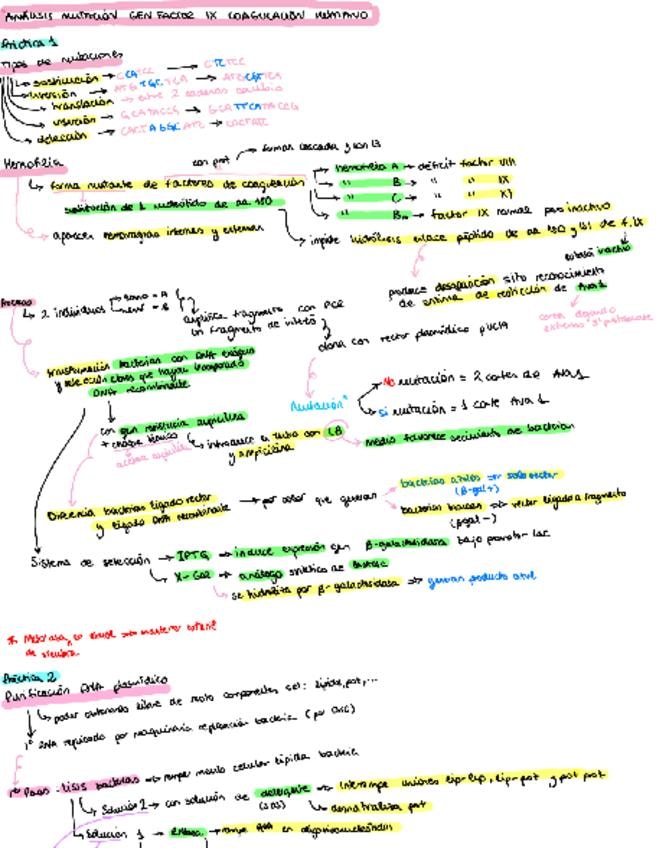 ANÁLISIS MUTACIÓN GEN FACTOR IX COAGULACIÓN HUMANO
Práctica 1
Tipos de mutaciones
sustitución →
inversión →
translación → entre 2 cadenas
→ GCATACCG → GCATTCATACCG
delección → CACTAGGCATC → CACTATC
Hemofilia
con prot → forman cascada y son 13
forma mutante de factores de coagulación
Hemofilia A → déficit factor VIII
" B → " " IX
" C → " " XI
" Bm → factor IX normal pero inactivo
sustitución de 1 nucleótido de aa 180
aparecen hemorragias internas y externas
impide hidrólisis enlace péptido de aa 180 y 181 de f. IX
produce desaparición sitio reconocimiento
de enzima de restricción de Ava 1
corta dejando
2 individuos
amplifica fragmento con PCR
un fragmento de interés
clona con vector plasmídico pUC18
transformación bacterias con DNA exógeno
y selección clones que hayan incorporado
DNA recombinante
Mutación?
No mutación = 2 cortes de Ava 1
si mutación = 1 corte Ava 1
con gen resistencia ampicilina
+ choque térmico
introduce en tubo con LB
y ampicilina
medio favorece crecimiento de bacterias
Diferencia bacterias ligado vector
y ligado DNA recombinante
→ por color que generan
bacterias azules ⇒ solo vector
(β-gal+)
bacterias blancas ⇒ vector ligado a fragmento
(βgal-)
Sistema de selección → IPTG → induce expresión gen β-galactosidasa bajo promotor lac
X-Gal → análogo sintético de lactosa
se hidroliza por β-galactosidasa ⇒ generan producto azul
de siembra
Práctica 2
Purificación DNA plasmídico
poder obtenerlo libre de resto componentes cel: lípidos, prot,...
1º DNA replicado por maquinaria replicación bacteria (por ORI)
1er Paso - lisis bacterias ⇒ romper medio celular lípida bacteria
Solución 2 → con solución de detergente ⇒ interrumpe uniones lip-lip, lip-prot y prot prot
(SDS)
desnaturaliza prot
Solución 1 → RNasa ⇒ rompe RNA en oligonucleótidos